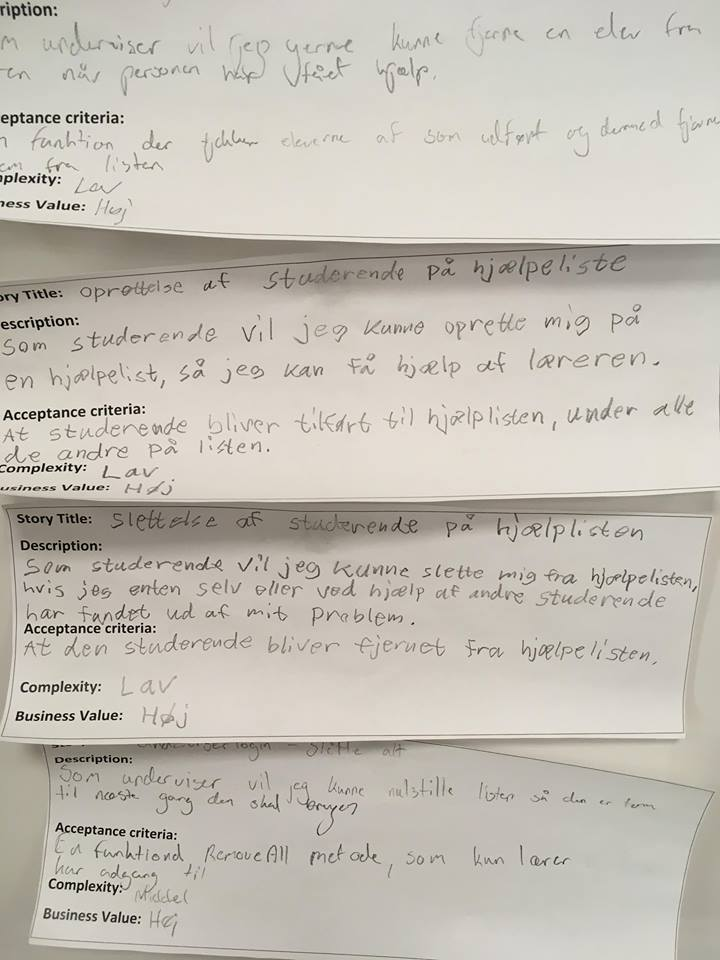 ription:
m underviser vil jeg gerne kunne fjerne en elev fra
en når personen har fået hjælp.
eptance criteria:
n funktion der tjekker eleverne af som udført og dermed fjerne
em fra listen
mplexity: Lav
ness Value: Høj
ory Title: oprettelse af studerende på hjælpeliste
escription:
Som studerende vil jeg kunne oprette mig på
en hjælpelist, så jeg kan få hjælp af læreren.
Acceptance criteria:
At studerende bliver tilført til hjælplisten, under alle
de andre på listen.
Complexity: Lav
usiness Value: Høj
Story Title: Slettelse af studerende på hjælplisten
Description:
Som studerende vil jeg kunne slette mig fra hjælpelisten,
hvis jeg enten selv eller ved hjælp af andre studerende
har fundet ud af mit problem.
Acceptance criteria:
At den studerende bliver fjernet fra hjælpelisten.
Complexity: Lav
Business Value: Høj
login - Slette alt
Description:
Som underviser vil jeg kunne nulstille listen så den er
til næste gang den skal bruges
Acceptance criteria:
En funktion, RemoveAll metode, som kun lærer
har adgang til
Complexity: Middel
Business Value: Høj